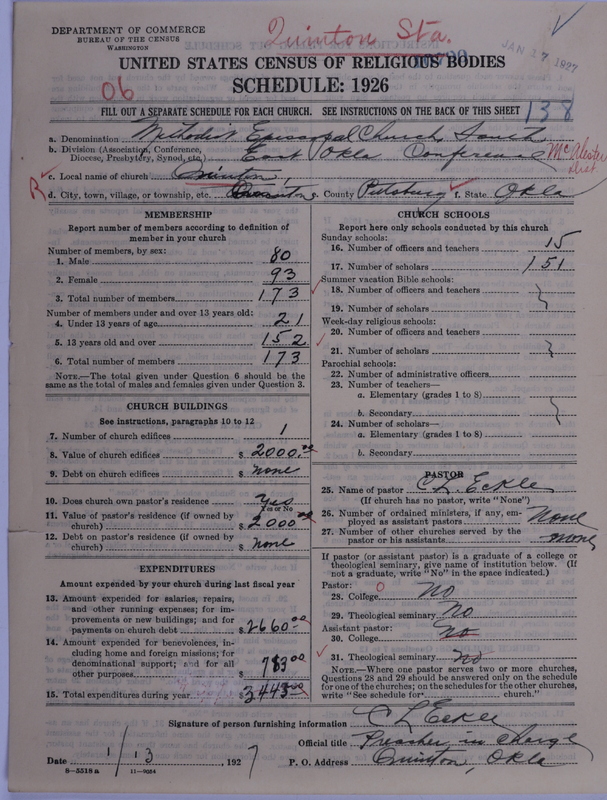 DEPARTMENT OF COMMERCE
BUREAU OF THE CENSUS
WASHINGTON
Quinton Sta.
JAN 17 1927
UNITED STATES CENSUS OF RELIGIOUS BODIES
06
SCHEDULE: 1926
FILL OUT A SEPARATE SCHEDULE FOR EACH CHURCH. SEE INSTRUCTIONS ON THE BACK OF THIS SHEET
138
a. Denomination Methodist Episcopal Church, South
b. Division (Association, Conference, Diocese, Presbytery, Synod, etc.) East Okla Conference
McAlester Dist
c. Local name of church Quinton,
R
d. City, town, village, or township, etc. Quinton e. County Pittsburg f. State Okla
MEMBERSHIP
Report number of members according to definition of member in your church
Number of members, by sex:
1. Male 80
2. Female 93
3. Total number of members 173
Number of members under and over 13 years old:
4. Under 13 years of age 21
5. 13 years old and over 152
6. Total number of members 173
NOTE.—The total given under Question 6 should be
same as the total of males and females given under Question 3.
CHURCH BUILDINGS
See instructions, paragraphs 10 to 12
7. Number of church edifices 1
8. Value of church edifices $ 2000.00
9. Debt on church edifices $ none
10. Does church own pastor's residence Yes
Yes or No
11. Value of pastor's residence (if owned by
church) $ 2000
12. Debt on pastor's residence (if owned by
church) $ none
EXPENDITURES
Amount expended by your church during last fiscal year
13. Amount expended for salaries, repairs,
and other running expenses; for improvements or new buildings; and for
payments on church debt $ 2660.00
14. Amount expended for benevolences, including home and foreign missions; for
denominational support; and for all
other purposes $ 783.00
15. Total expenditures during year $ 3443.00
CHURCH SCHOOLS
Report here only schools conducted by this church
Sunday schools:
16. Number of officers and teachers 15
17. Number of scholars 151
Summer vacation Bible schools:
18. Number of officers and teachers
19. Number of scholars
Week-day religious schools:
20. Number of officers and teachers
21. Number of scholars
Parochial schools:
22. Number of administrative officers
23. Number of teachers—
a. Elementary (grades 1 to 8)
b. Secondary
24. Number of scholars—
a. Elementary (grades 1 to 8)
b. Secondary
PASTOR
25. Name of pastor C L Eckle
(If church has no pastor, write "None")
26. Number of ordained ministers, if any, employed as assistant pastors None
27. Number of other churches served by the
pastor or his assistants none
If pastor (or assistant pastor) is a graduate of a college or
theological seminary, give name of institution below. (If
not a graduate, write "No" in the space indicated.)
Pastor: 0
28. College No
29. Theological seminary No
Assistant pastor:
30. College No
31. Theological seminary No
NOTE.—Where one pastor serves two or more churches,
Questions 28 and 29 should be answered only on the schedule
for one of the churches; on the schedules for the other churches,
write "See schedule for church."
Signature of person furnishing information C L Eckle
Official title Preacher in charge
Date 1/13 1927 P. O. Address Quinton, Okla
8—5518 a 11—9054